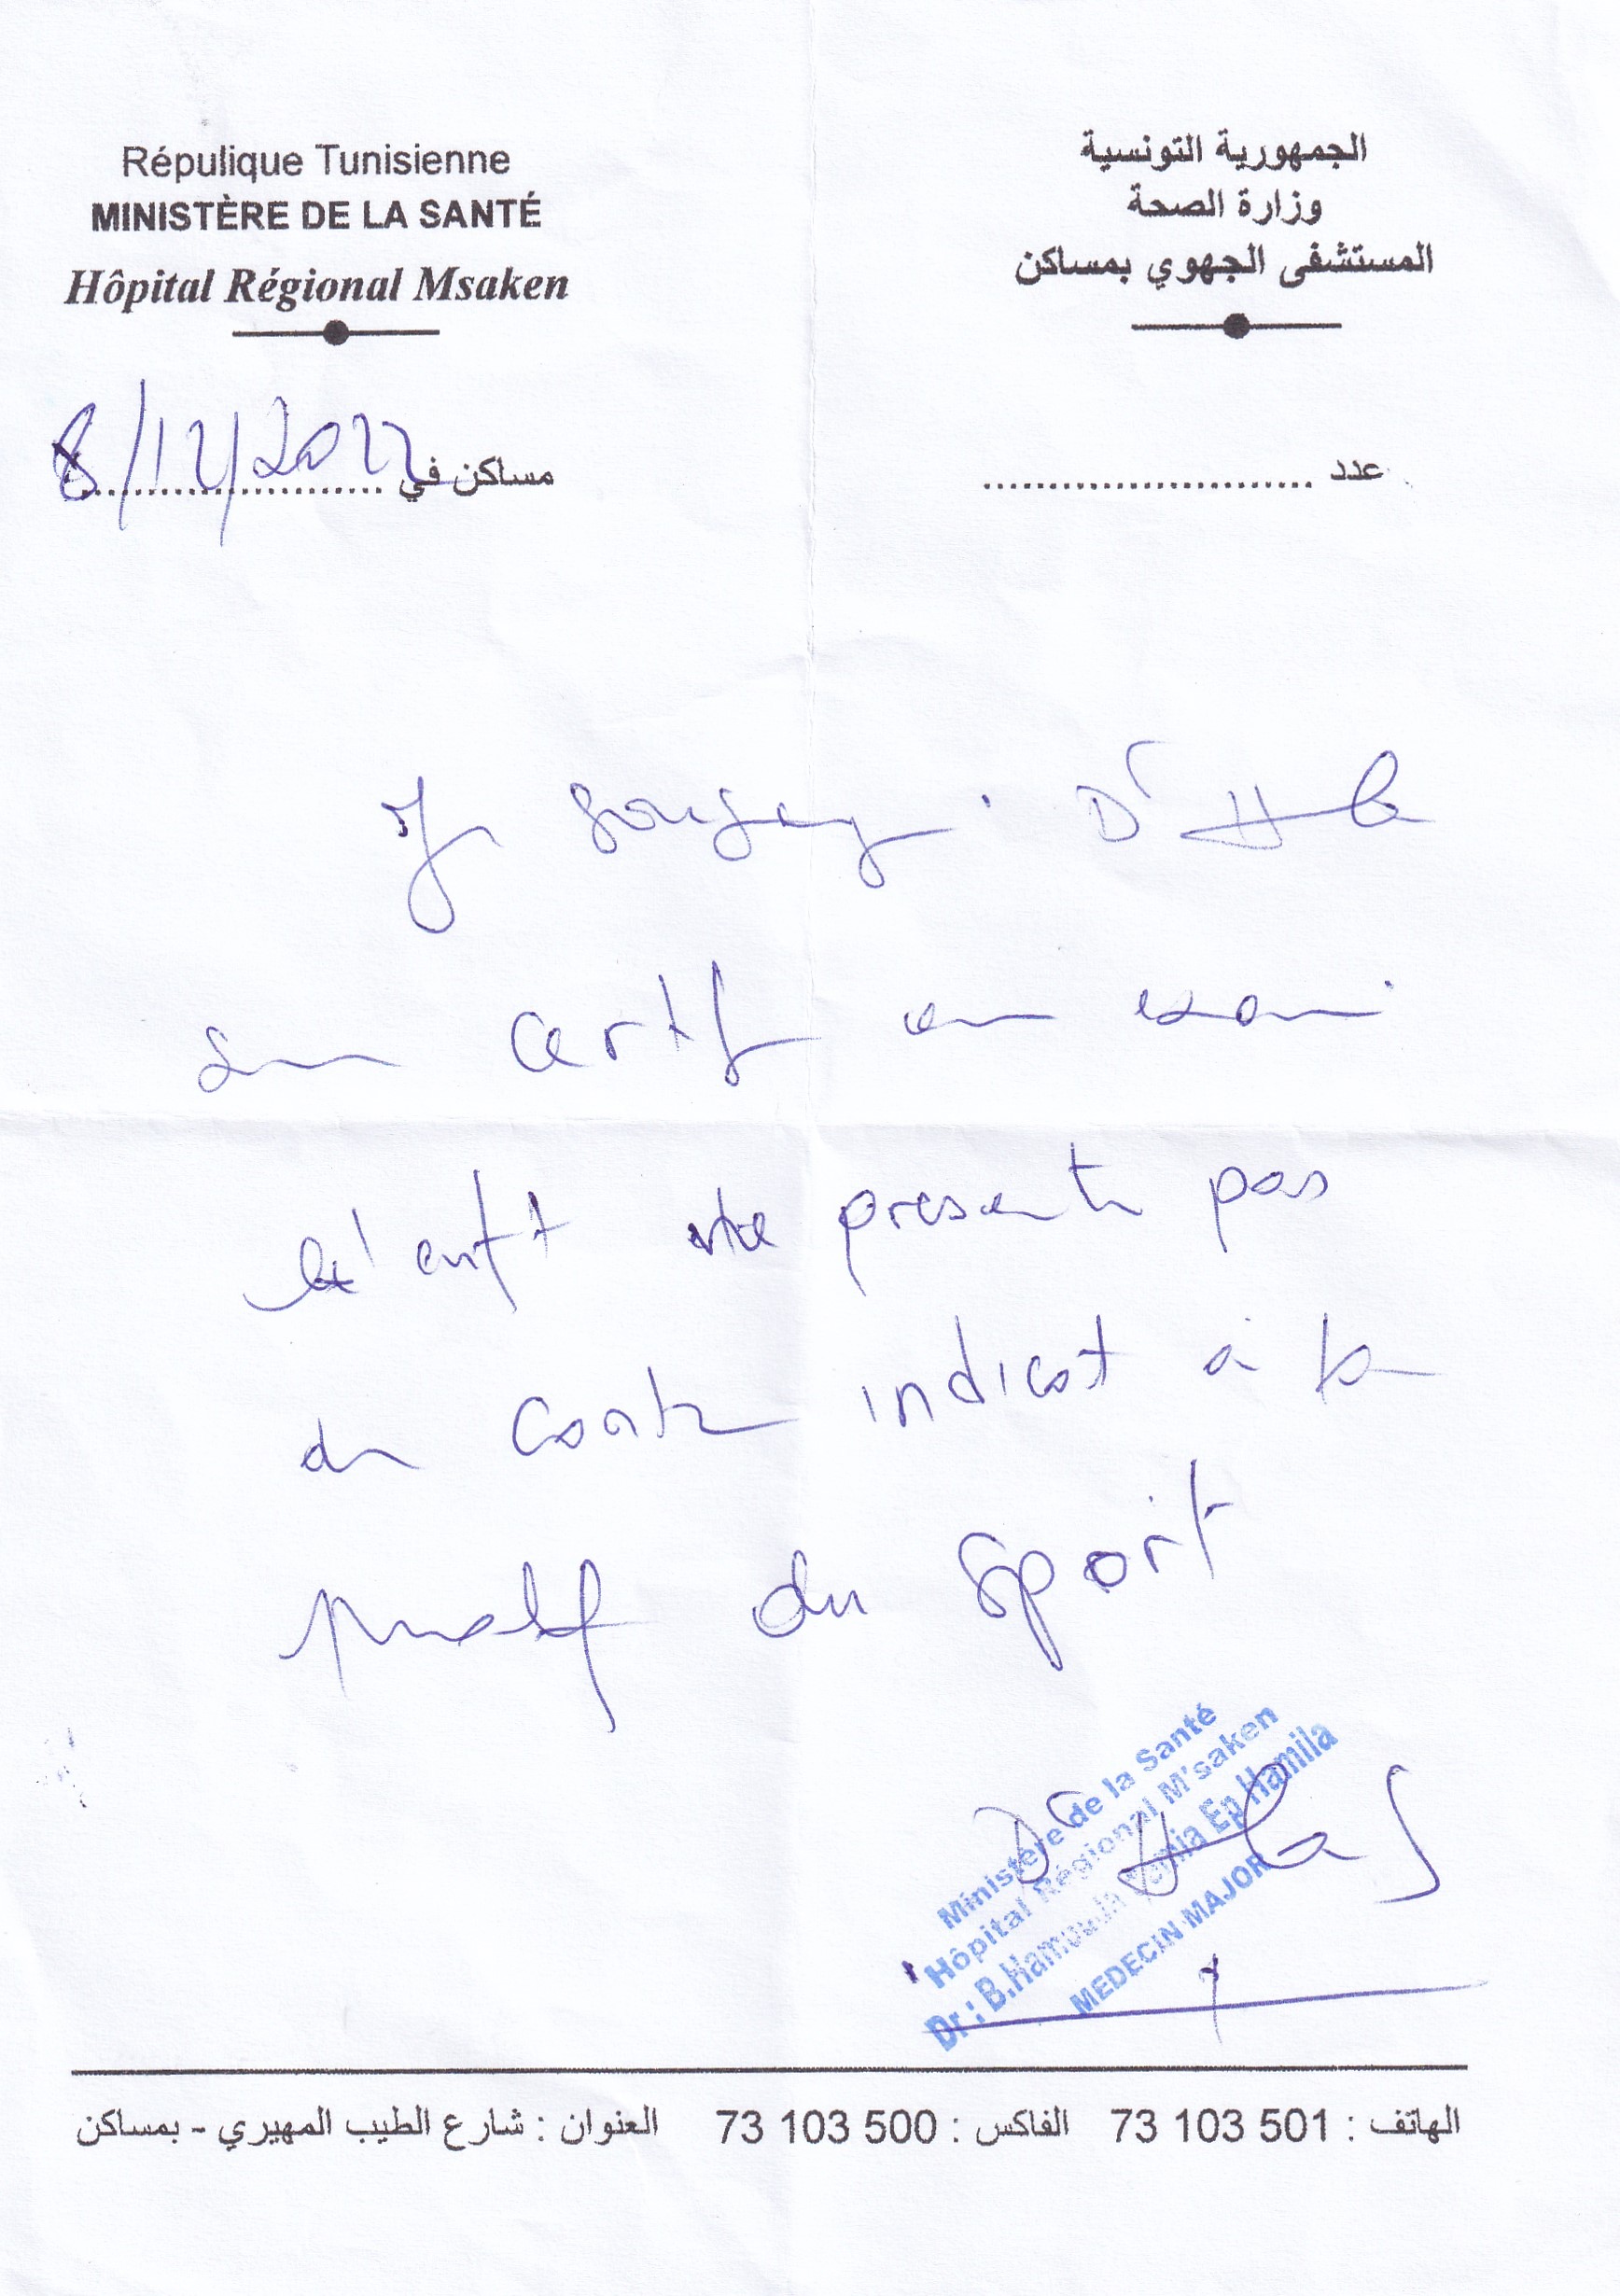 Répulique Tunisienne
MINISTÈRE DE LA SANTÉ
Hôpital Régional Msaken
الجمهورية التونسية
وزارة الصحة
المستشفى الجهوي بمساكن
مساكن في 8/12/2022
عدد
Je Dr
certif
l'enft ne presente pas
de contr indicat à la
du sport
Ministère de la Santé
Hôpital Régional M'saken
Dr : B.Hamouda Samia Ep Hamila
MEDECIN MAJOR
Dr
الهاتف : 73 103 501 الفاكس : 73 103 500 العنوان : شارع الطيب المهيري - بمساكن